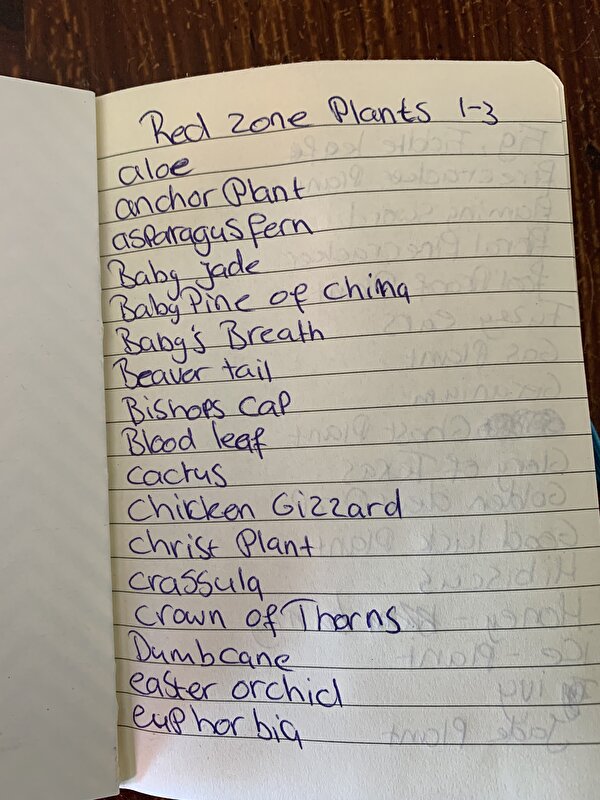 Red Zone Plants 1-3
aloe
anchor Plant
asparagus fern
Baby jade
Baby Pine of China
Baby's Breath
Beaver tail
Bishops Cap
Blood leaf
cactus
Chicken Gizzard
christ Plant
crassula
crown of Thorns
Dumbcane
easter orchid
euphorbia